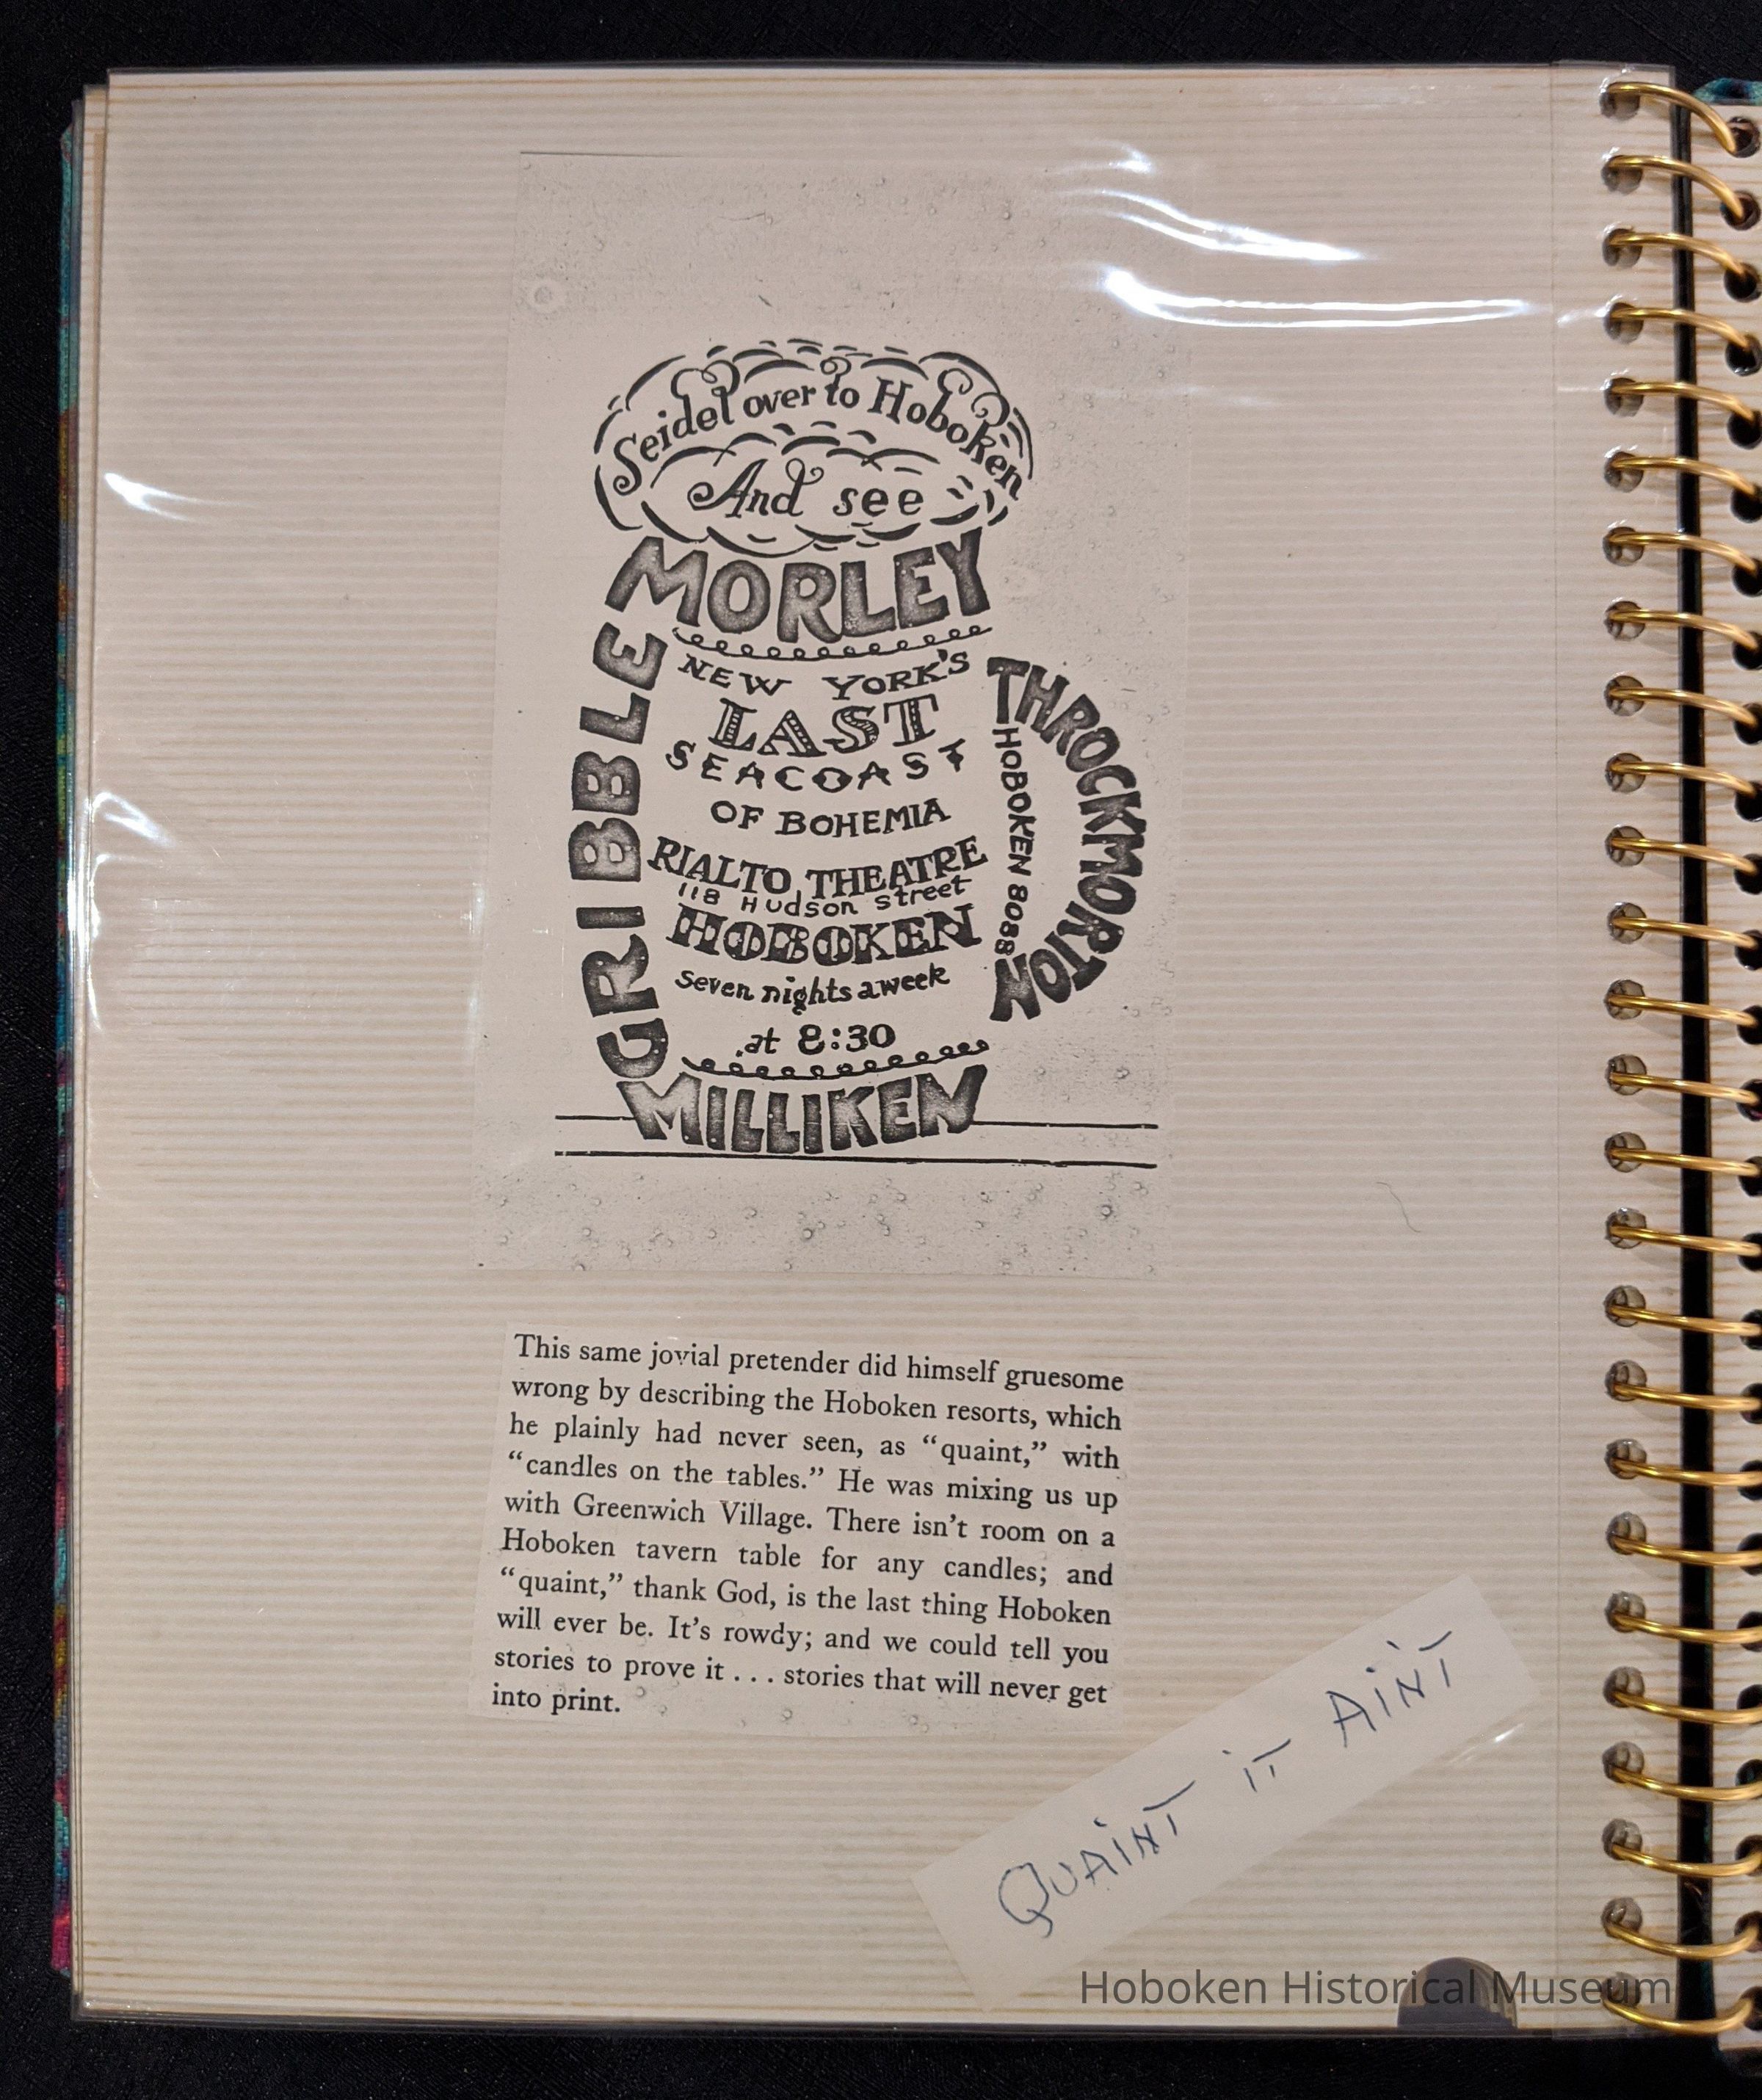 Seidel over to Hoboken
And see
MORLEY
GRIBBLE
NEW YORK'S
LAST
SEACOAST
OF BOHEMIA
RIALTO THEATRE
118 Hudson Street
HOBOKEN
seven nights a week
at 8:30
THROCKMORTON
HOBOKEN 8088
MILLIKEN
This same jovial pretender did himself gruesome
wrong by describing the Hoboken resorts, which
he plainly had never seen, as “quaint,” with
“candles on the tables.” He was mixing us up
with Greenwich Village. There isn’t room on a
Hoboken tavern table for any candles; and
“quaint,” thank God, is the last thing Hoboken
will ever be. It’s rowdy; and we could tell you
stories to prove it . . . stories that will never get
into print.
QUAiNT iT AiNT
Hoboken Historical Museum